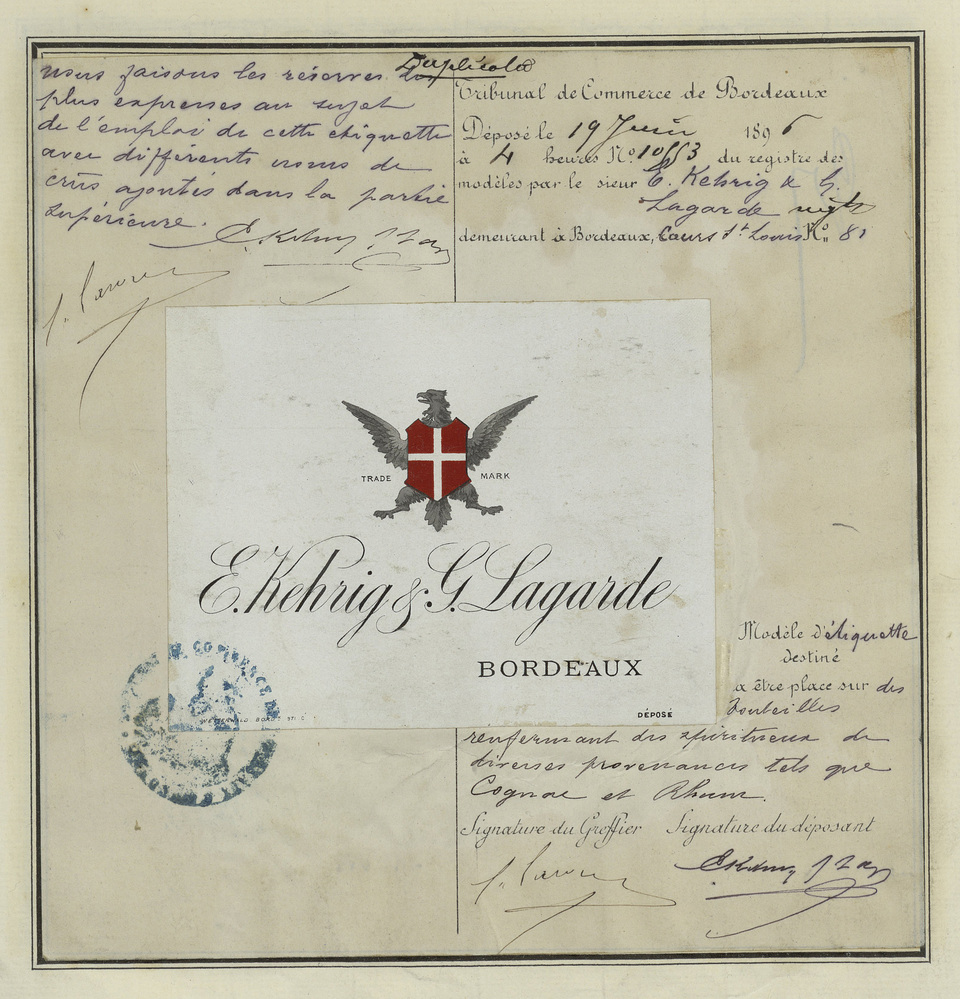 Duplicata
nous faisons les réserves les
plus expresses au sujet
de l'emploi de cette étiquette
avec différents noms de
crûs ajoutés dans la partie
supérieure.
Tribunal de Commerce de Bordeaux
Déposé le 19 Juin 1896
à 4 heures No. 10553 du registre des
modèles par le sieur E. Kehrig & G.
Lagarde négts
demeurant à Bordeaux, Cours St Louis No. 81
TRADE MARK
E. Kehrig & G. Lagarde
BORDEAUX
DÉPOSÉ
Modèle d'étiquette
destiné
a être place sur des
bouteilles
renfermant des spiritueux de
diverses provenances tels que
Cognac et Rhum.
Signature du Greffier Signature du déposant